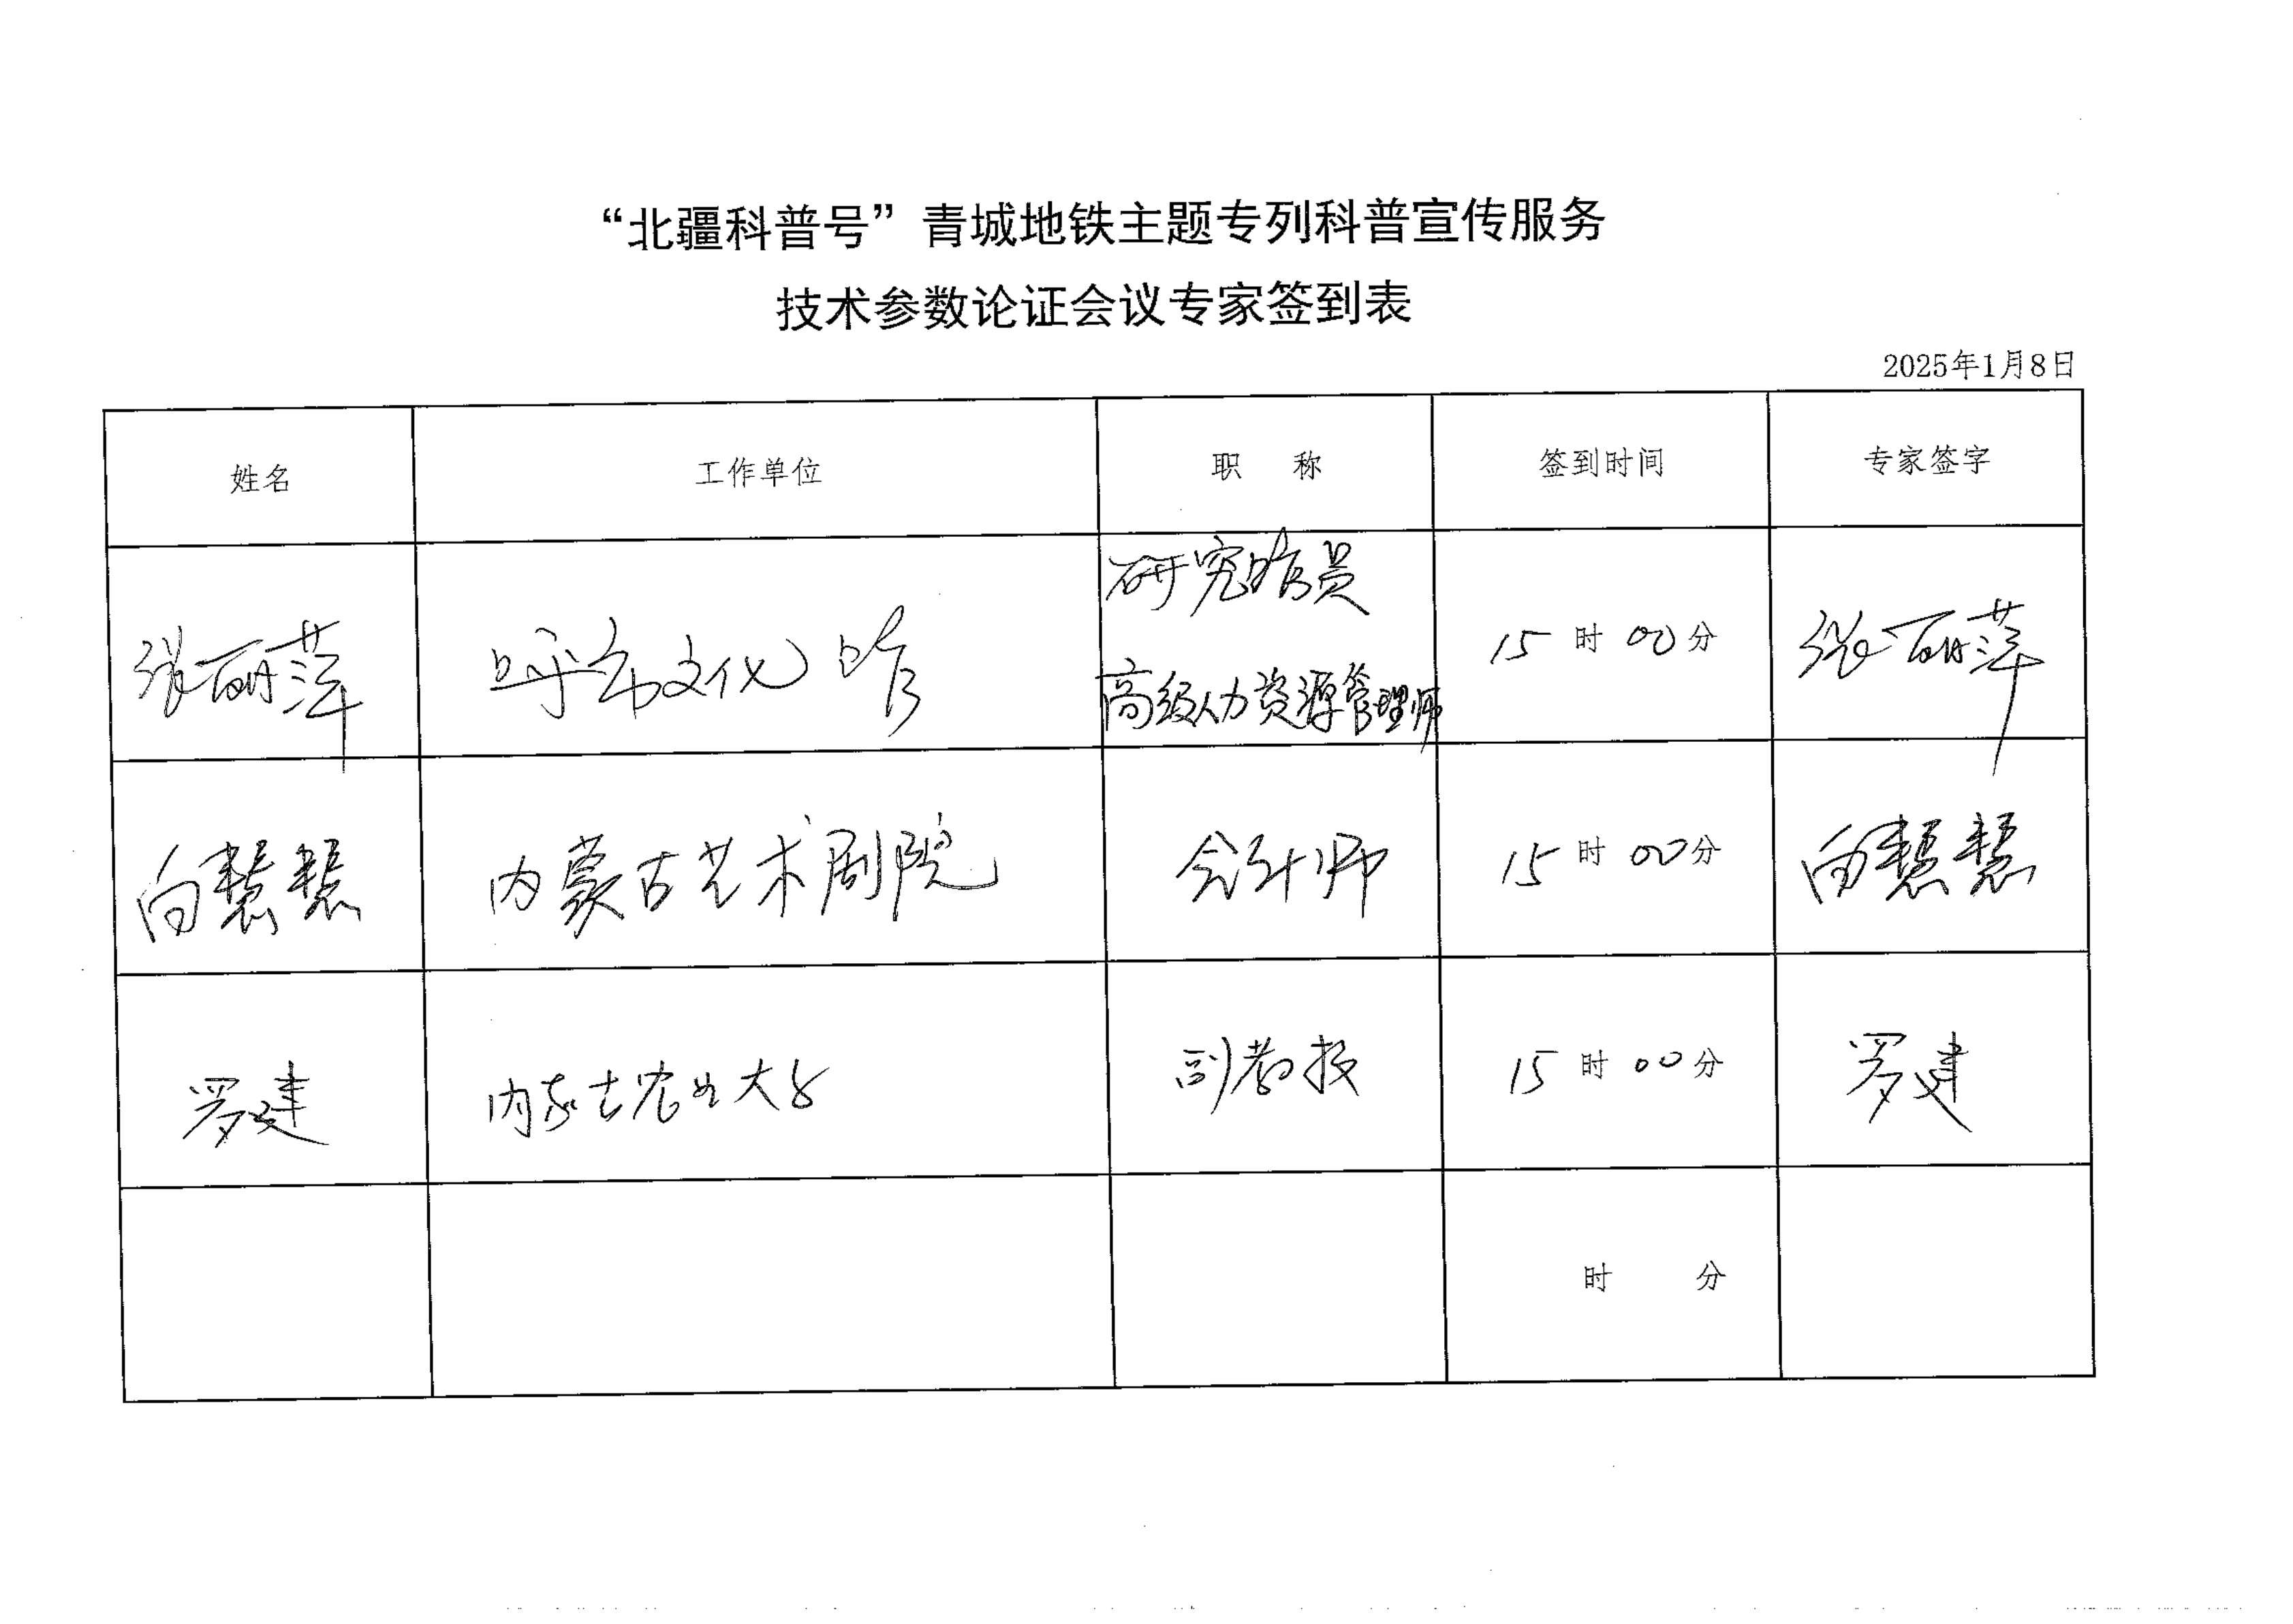 “北疆科普号”青城地铁主题专列科普宣传服务
技术参数论证会议专家签到表
2025年1月8日
姓名 工作单位 职 称 签到时间 专家签字
张丽萍 呼市文化馆 研究馆员 15时00分 张丽萍
高级人力资源管理师
白慧慧 内蒙古艺术剧院 会计师 15时00分 白慧慧
罗建 内蒙古农业大学 副教授 15时00分 罗建
时 分